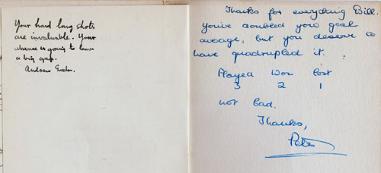 Your hard long shots
are invaluable. Your
absence is going to leave
a big gap.
Andrew
Thanks for everything Bill.
you've doubled your goal
average, but you deserve to
have quadrupled it.
Played Won Lost
3 2 1
not bad.
Thanks,
Peter